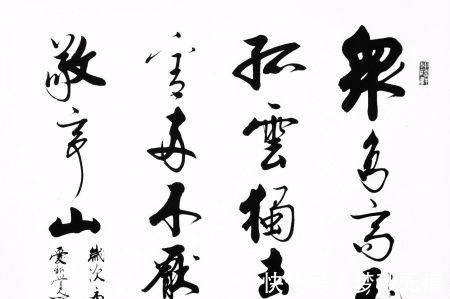 眾鳥高
孤雲獨去
看兩不厭
敬亭山
歲次
愛新覺